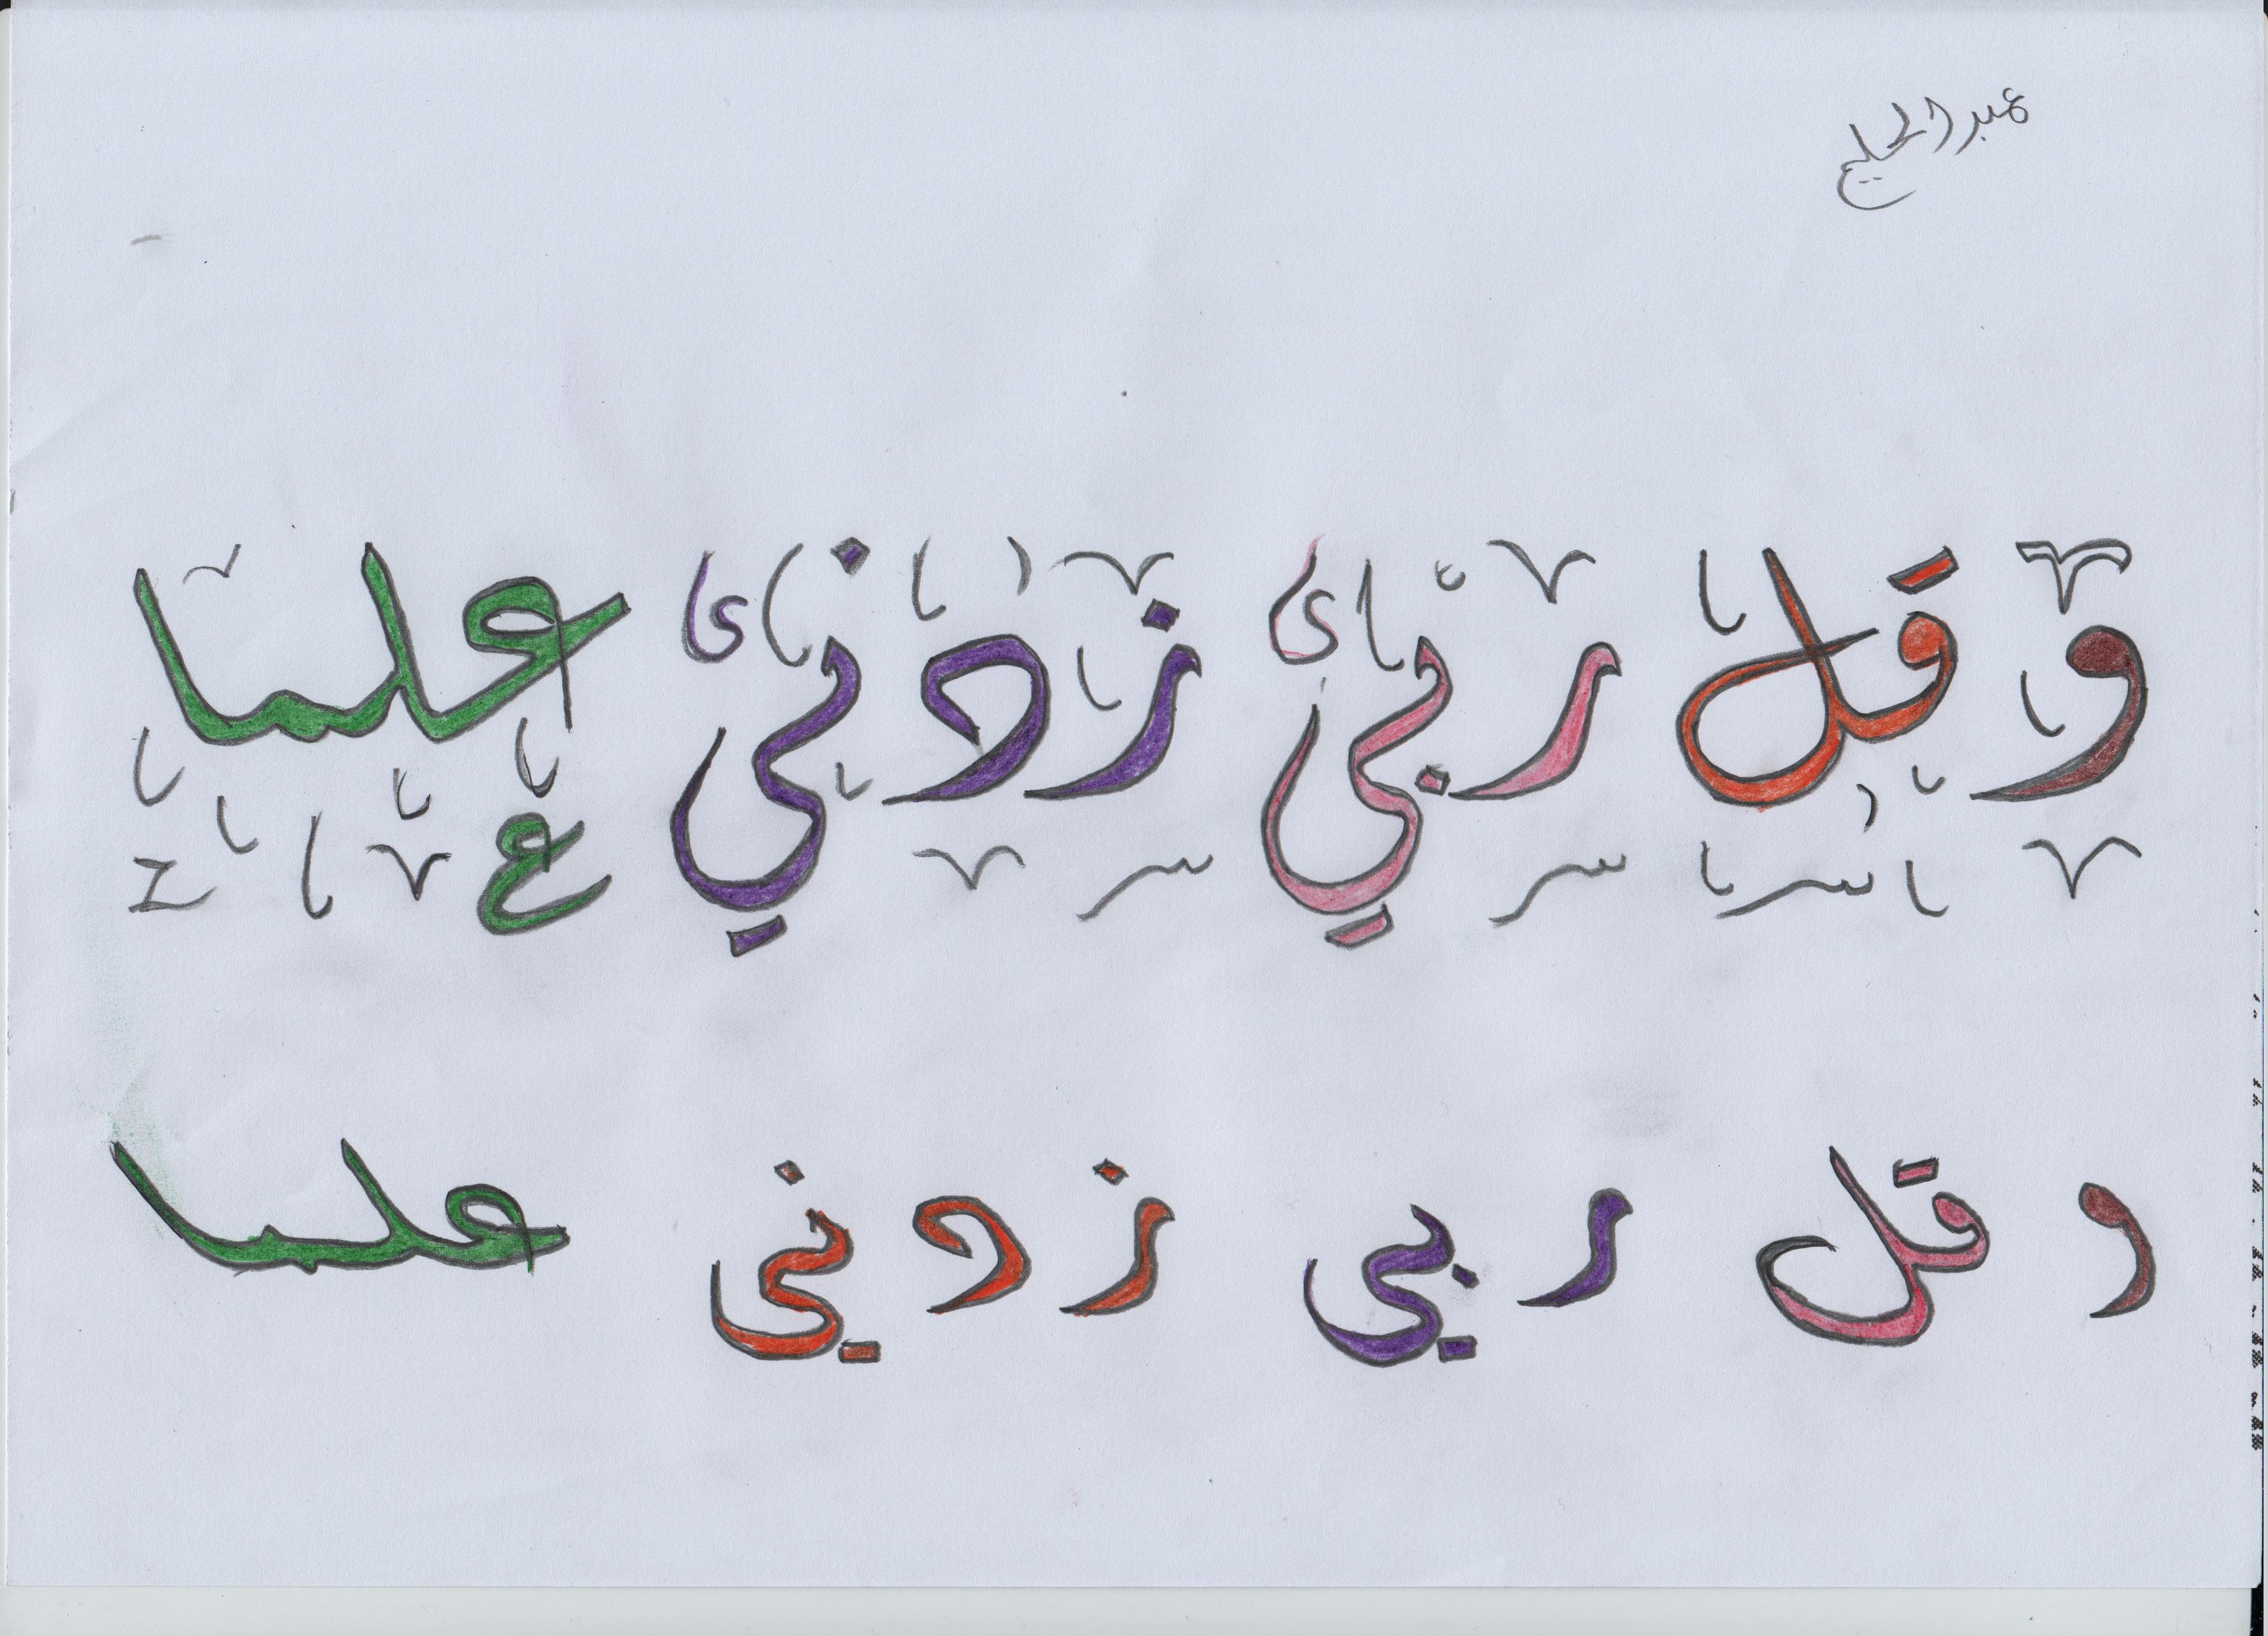 عبد الحليم
وقل ربي زدني علما
وقل ربي زدني علما